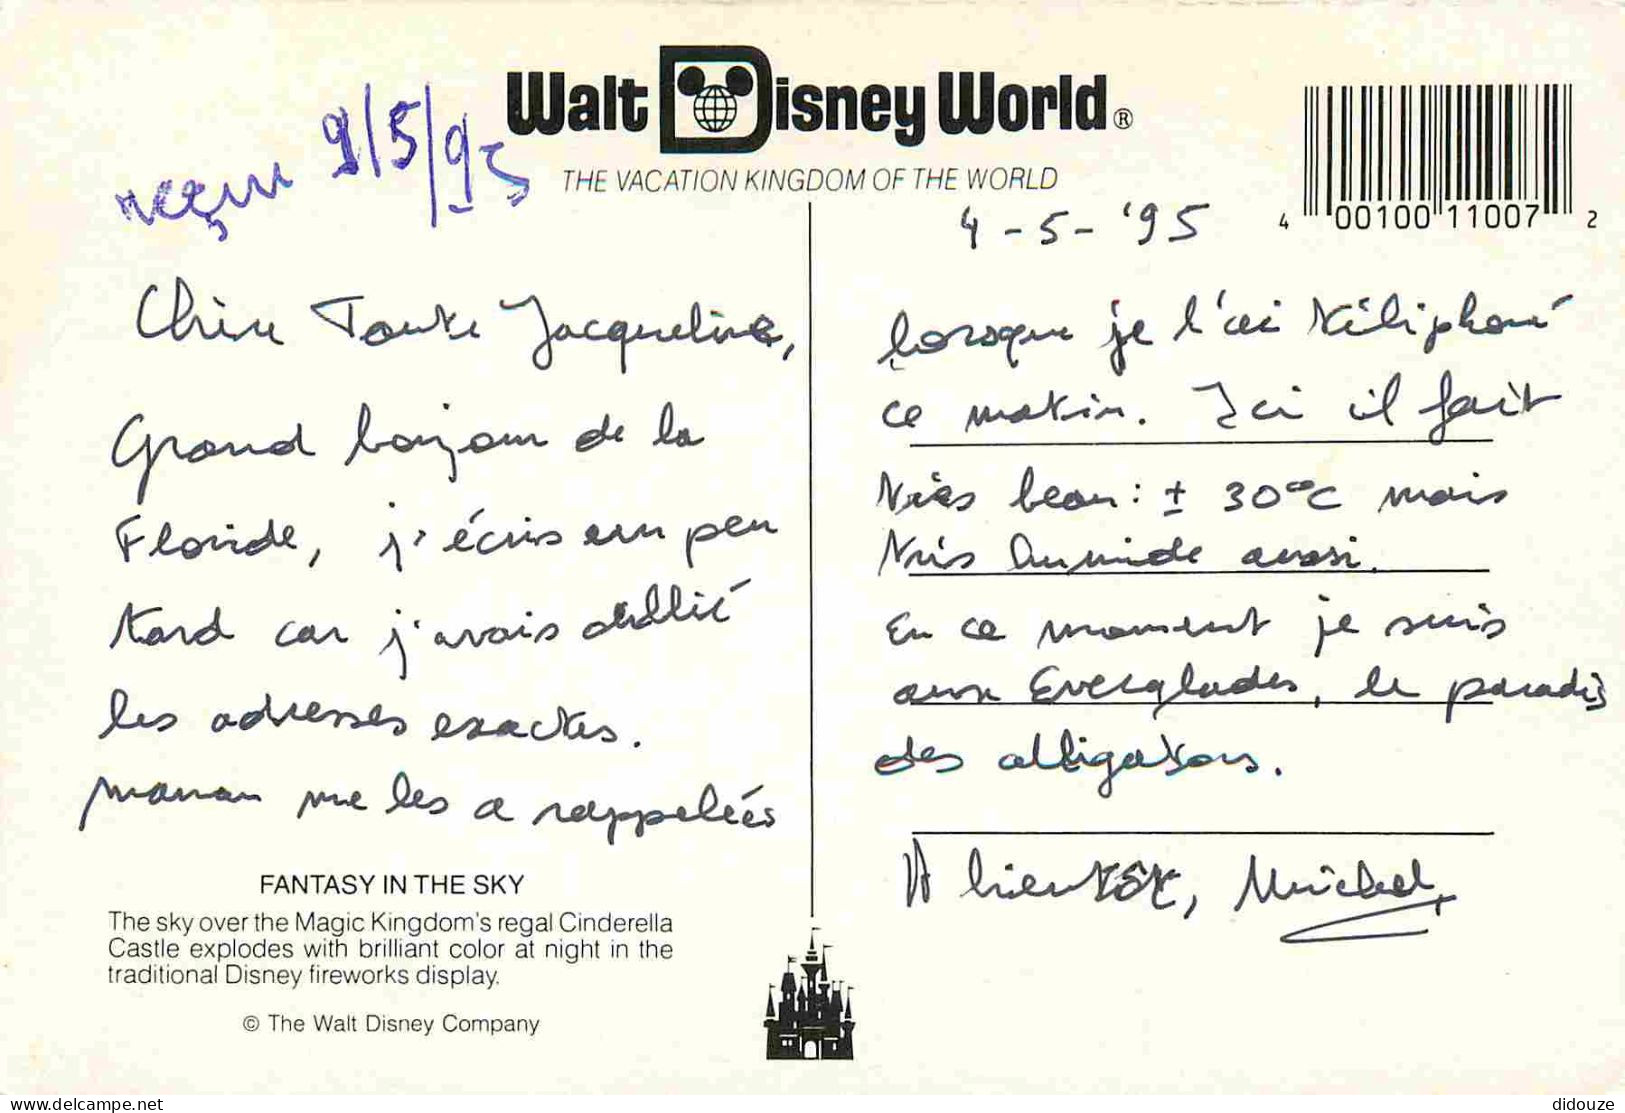 Walt Disney World®
THE VACATION KINGDOM OF THE WORLD
reçu 9/5/95
4 00100 11007 2
4-5-'95
Chère Tante Jacqueline,
Grand bonjour de la
Floride, j'écris un peu
tard car j'avais oublié
les adresses exactes.
Maman me les a rappelées
lorsque je l'ai téléphoné
ce matin. Ici il fait
très beau: ± 30°C mais
très humide aussi.
En ce moment je suis
aux Everglades, le paradis
des alligators.
A bientôt, Michel
FANTASY IN THE SKY
The sky over the Magic Kingdom's regal Cinderella
Castle explodes with brilliant color at night in the
traditional Disney fireworks display.
© The Walt Disney Company
https://www.delcampe.net
didouze